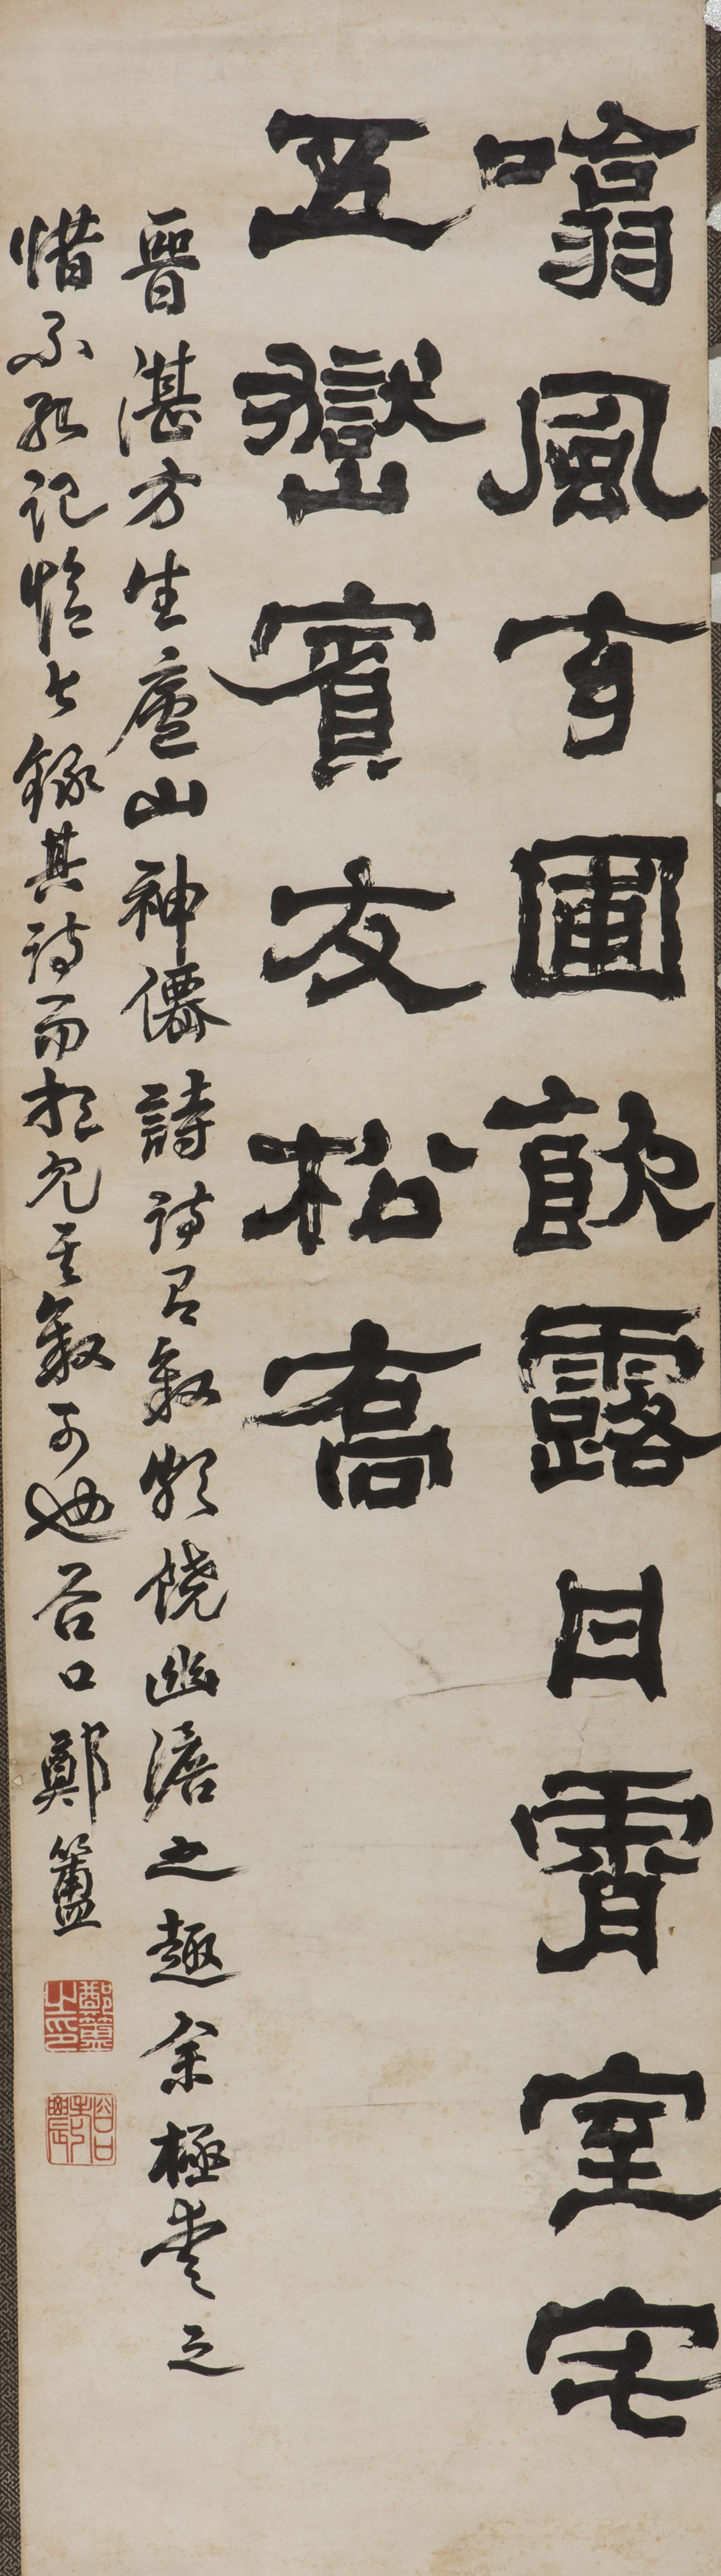 噏風玄圃飲露丹霄室宅
五嶽賓友松喬
晉湛方生廬山神僊詩詩有敘頗饒幽澹之趣余極愛之
惜不能記憶止錄其詩而想見其敘可也谷口鄭簠
鄭簠之印
谷口